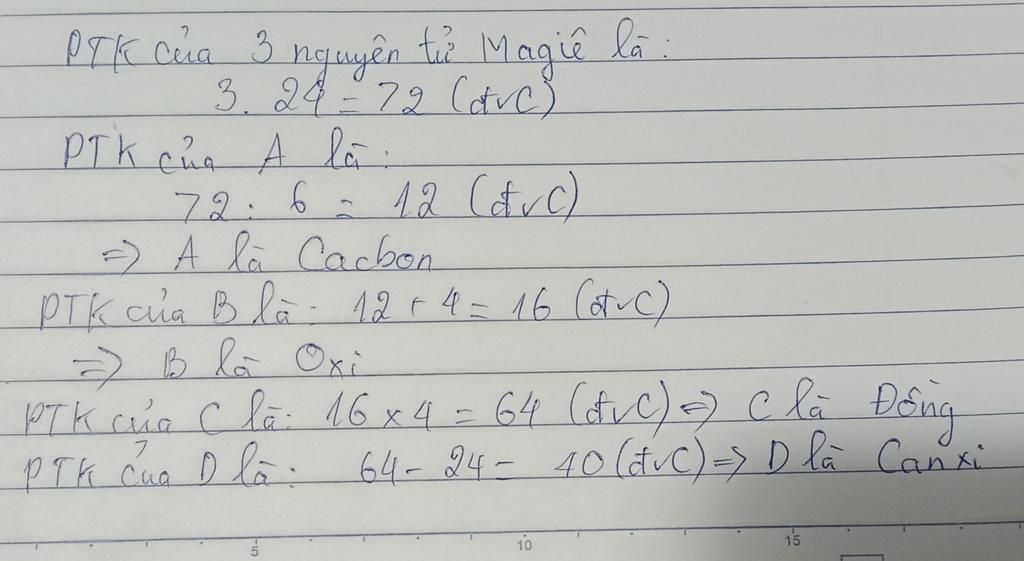 PTK của 3 nguyên tử Magiê là:
3. 24 = 72 (đvC)
PTK của A là:
72 : 6 = 12 (đvC)
=> A là Cacbon
PTK của B là: 12 + 4 = 16 (đvC)
=> B là Oxi
PTK của C là: 16 x 4 = 64 (đvC) => C là Đồng
PTK của D là: 64 - 24 = 40 (đvC) => D là Canxi
5 10 15